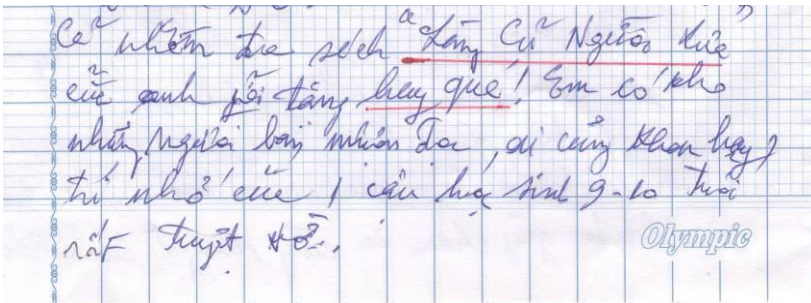 Cả nhóm đưa sách "Làng Cũ Người Xưa"
của anh gởi tặng hay quá! Em có kho
những người bạn mình đưa, ai cũng khen hay,
trí nhớ của 1 cậu học sinh 9-10 tuổi
rất tuyệt vời.
Olympic